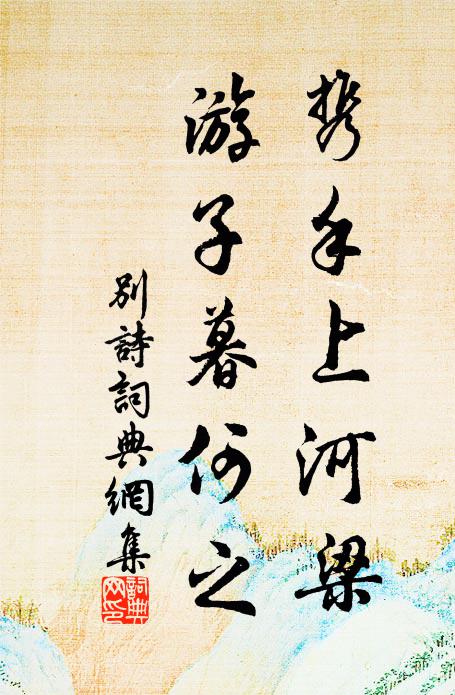 携手上河梁
游子暮何之
别詩詞典網集
詞典